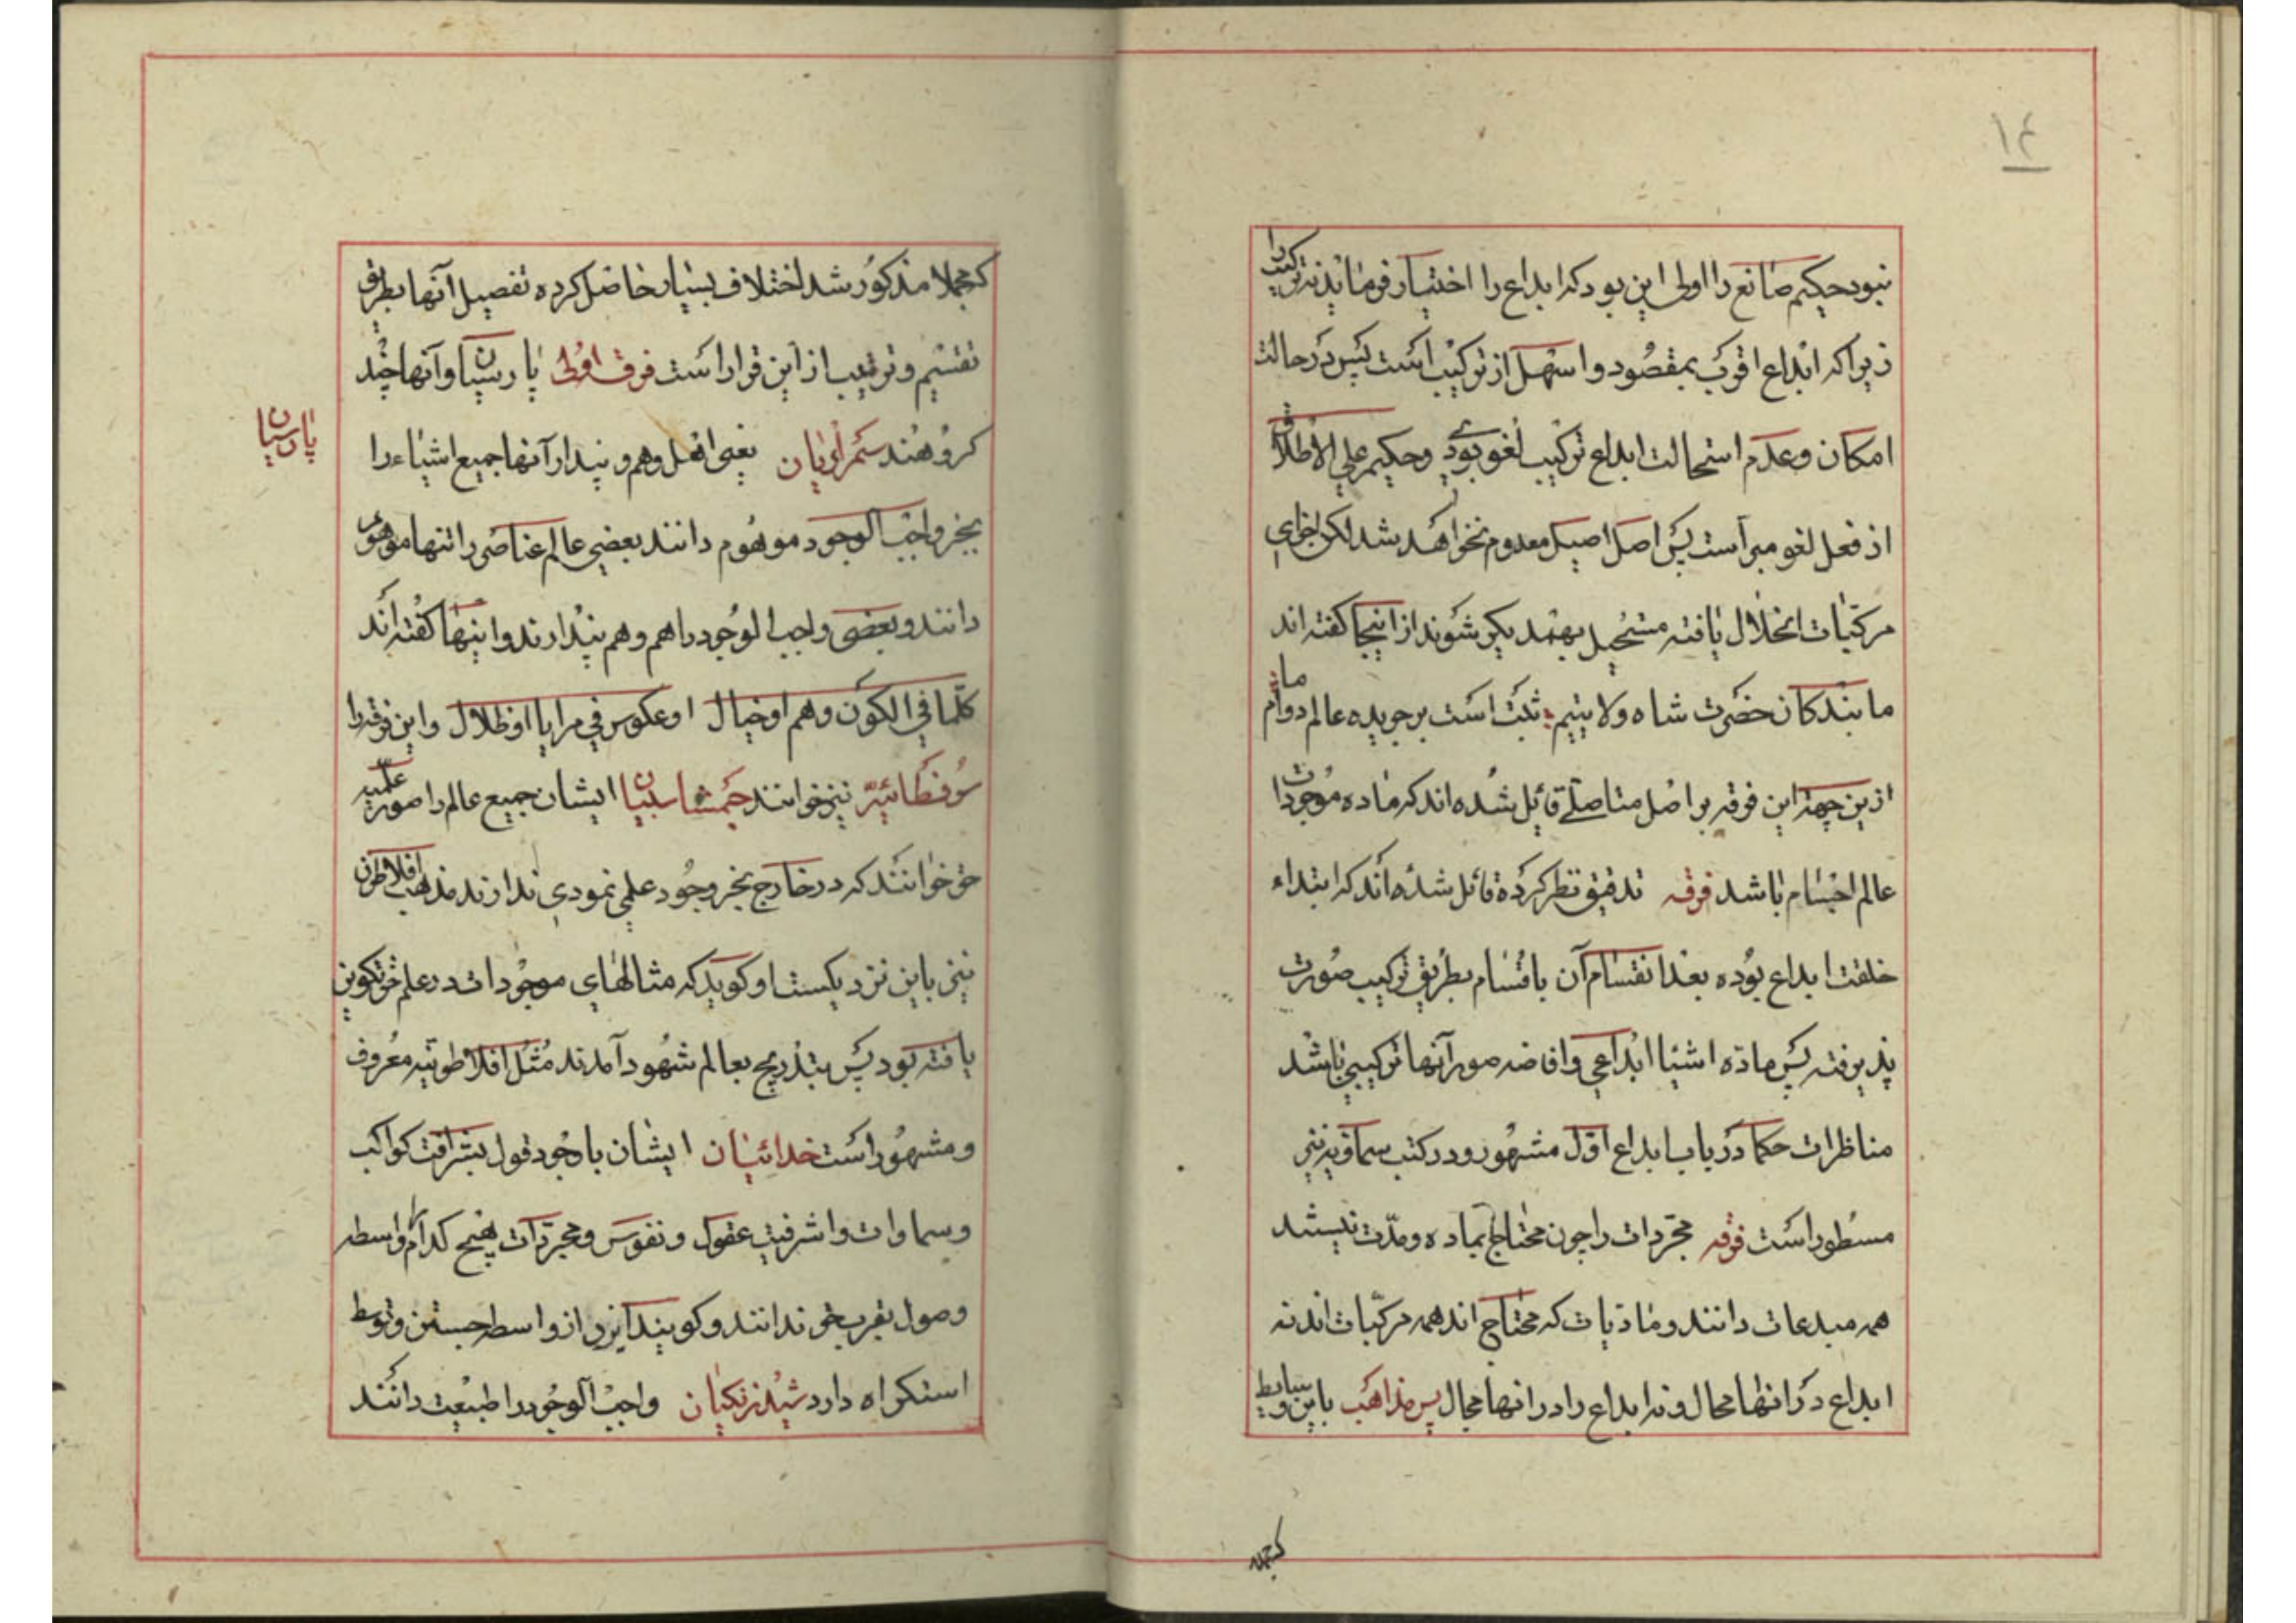 ١٤
نبود حکیم صانع را اولی این بود که ابداع را اختیار فرماید نه ترکیب را
زیرا که ابداع اقرب بمقصود و اسهل از ترکیب است پس در حالت
امکان و عدم استحالت ابداع ترکیب لغو بودی و حکیم علی الاطلاق
از فعل لغو مبرآست پس اصل اصیل معدوم نخواهد شد لکن اجزای
مرکبات انحلال یافته مستحیل بهمدیکر شوند از اینجا کفته اند
ما بندکان حضرت شاه ولایتیم ثبت است بر جریده عالم دوام ما
ازین جهة این فرقه بر اصل متاصلی قایل شده اند که ماده موجودات
عالم اجسام باشد فرقه تدقیق نظر کرده قائل شده اند که ابتداء
خلقت ابداع بوده بعد انقسام آن باقسام بطریق ترکیب صورت
پذیرفته پس ماده اشیا ابداعی و افاضه صور آنها ترکیبی باشد
مناظرات حکما در باب ابداع اول مشهور و در کتب سماویه نیز
مسطور است فرقه مجردات را چون محتاج بماده و مدّت نیستند
همه مبدعات دانند و مادیات که محتاج اند همه مرکبات اند نه
ابداع در انها محال و نه ابداع را در انها مجال پس مذاهب باین بسایط
کمجملا
کمجملا مذکور شد اختلاف بسیار حاصل کرده تفصیل آنها بطریق
تقسیم و ترتیب از این قرار است فرقه اولی پارسیان و آنها چند
پارسیان
کروهند سمرادیان یعنی اهل وهم و پندار آنها جمیع اشیاء را
بجز واجب الوجود موهوم دانند بعضی عالم عناصر را تنها موهوم
دانند و بعضی واجب الوجود را هم وهم پندارند و اینها کفته اند
کلما فی الکون وهم او خیال او عکوس فی مرایا او ظلال و این فرقه را
سوفسطائیه نیز خوانند جمشاسبیان ایشان جمیع عالم را صور علمیه
حق خوانند که در خارج بجز وجود علمی نمودی ندارند مذهب افلاطون
نیز باین نزدیکست او کوید که مثالهای موجودات در علم حق تکوین
یافته بود پس بتدریج بعالم شهود آمدند مُثُل افلاطونیه معروف
و مشهور است خدائیان ایشان باوجود قول بشرافت کواکب
و سماوات و اشرفیت عقول و نفوس و مجردات هیچ کدام را واسطه
وصول بقرب حق ندانند و کویند ایزد از واسطه جستن و توسط
استکراه دارد شیدرنکیان واجب الوجود را طبیعت دانند